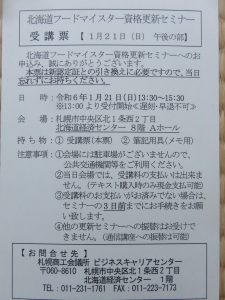 北海道フードマイスター資格更新セミナー
受 講 票 【 1月21日(日) 午後の部】
北海道フードマイスター資格更新セミナーへのお
申込み、誠にありがとうございます。
本票は新認定証との引き換えに必要ですので、当日
忘れずにお持ちください。
日 時:令和6年1月21日(日)13:30~15:30
※13:00より受付開始≪遅刻・早退不可≫
会 場:札幌市中央区北1条西2丁目
北海道経済センター 8階 Aホール
持 ち 物:① 受講票(本票) ② 筆記用具(メモ用)
注意事項:①会場には駐車場がございませんので、
公共交通機関等をご利用ください。
②当日会場では、受講料の支払いは出来ま
せん。(テキスト購入時のみ現金支払可能)
③受講料のお支払いがお済みでない場合は、
セミナーの3日前までにお手続きをお願
い致します。
④他の更新セミナーへの振替はお受けで
きません。(通信講座への振替は可能)
【お 問 合 せ 先 】
札幌商工会議所 ビジネスキャリアセンター
〒060-8610 札幌市中央区北1条西2丁目
北海道経済センター 1階
TEL:011-231-1761 FAX:011-223-7173